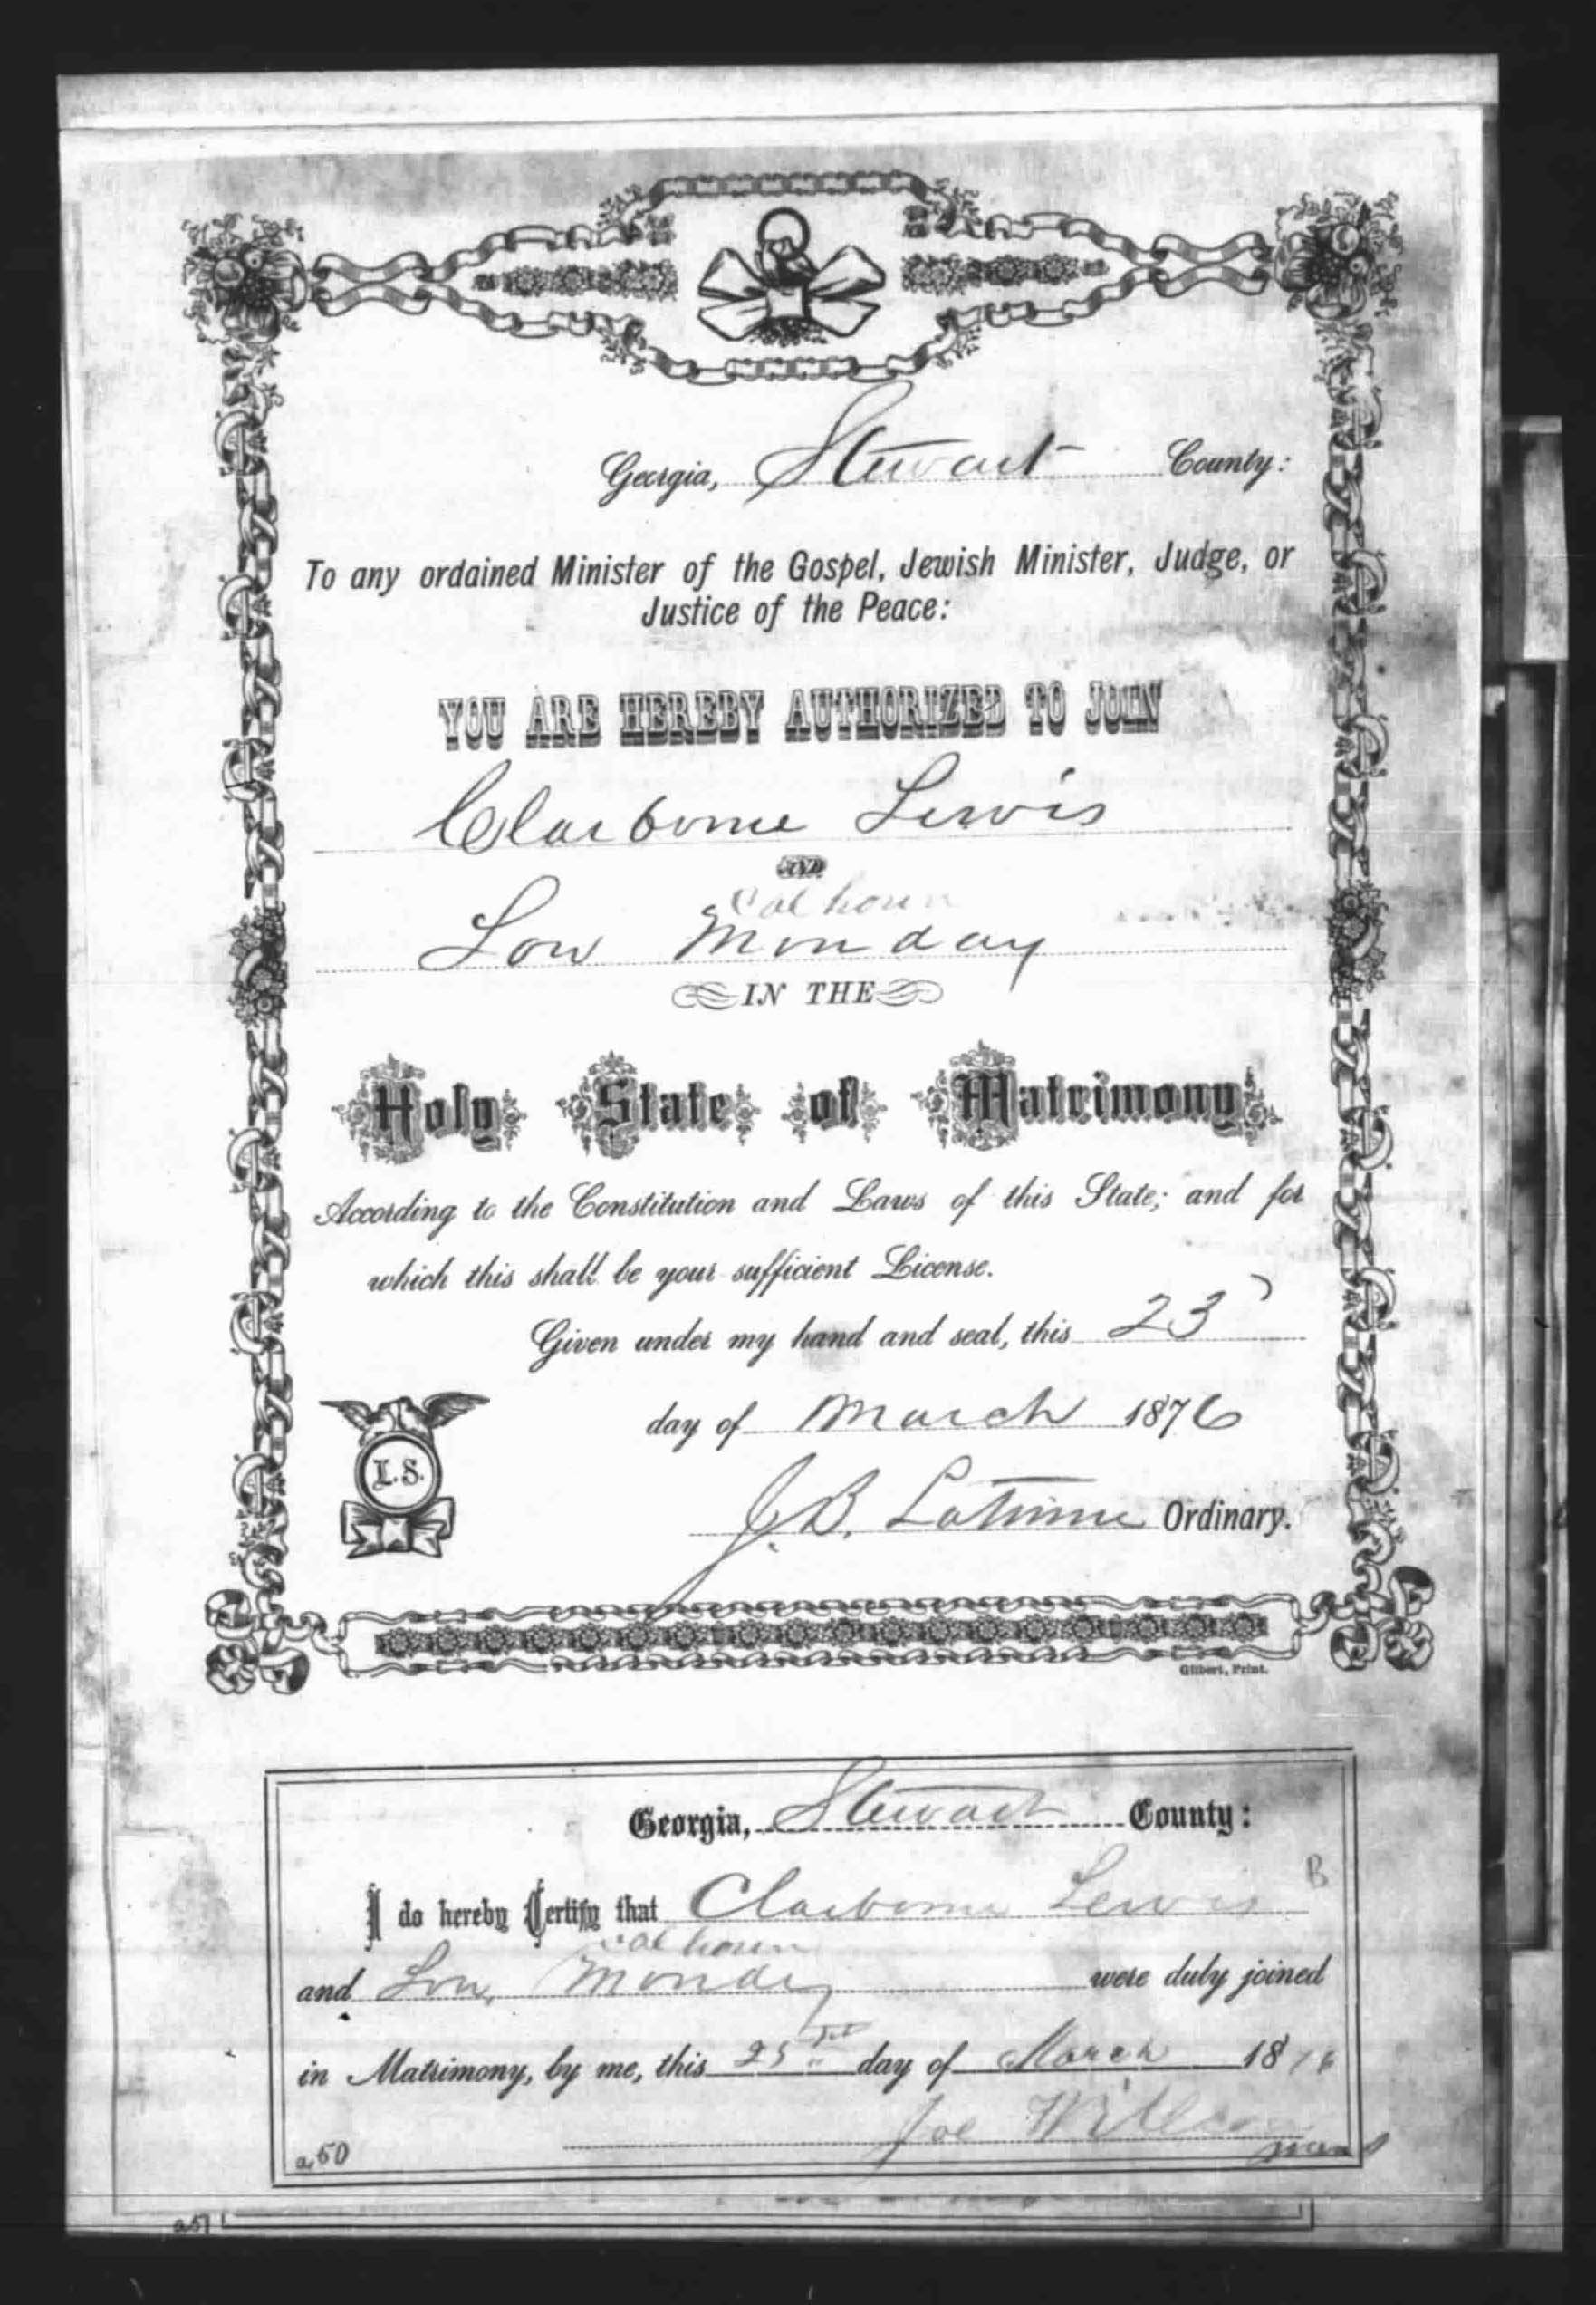 Georgia, Stewart County:
To any ordained Minister of the Gospel, Jewish Minister, Judge, or
Justice of the Peace:
YOU ARE HEREBY AUTHORIZED TO JOIN
Claiborne Lewis
AND
Calhoun
Lou Monday
IN THE
Holy State of Matrimony
According to the Constitution and Laws of this State; and for
which this shall be your sufficient License.
Given under my hand and seal, this 23
day of March 1876
L. S.
J. B. Latimer Ordinary.
Gilbert, Print.
Georgia, Stewart County:
B
I do hereby Certify that Claiborne Lewis
Calhoun
and Lou Monday were duly joined
in Matrimony, by me, this 25 day of March 1876
Joe
a50
a51